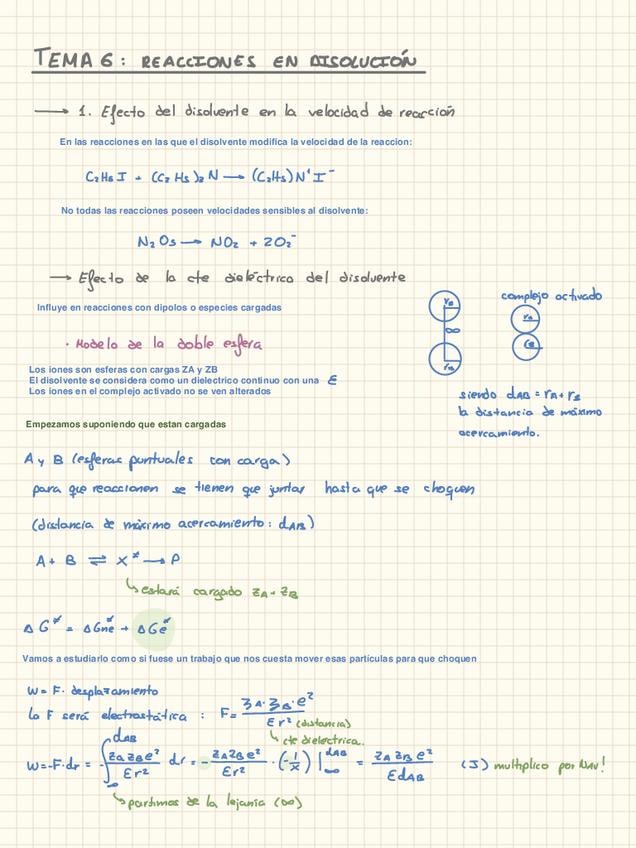 TEMA 6: REACCIONES EN DISOLUCIÓN
→ 1. Efecto del disolvente en la velocidad de reacción
En las reacciones en las que el disolvente modifica la velocidad de la reaccion:
C₂H₆I + (C₂H₅)₂N → (C₂H₅)N⁺I⁻
No todas las reacciones poseen velocidades sensibles al disolvente:
N₂O₅ → NO₂ + 2O₂⁻
→ Efecto de la cte dieléctrica del disolvente
Influye en reacciones con dipolos o especies cargadas
· Modelo de la doble esfera
Los iones son esferas con cargas ZA y ZB
El disolvente se considera como un dielectrico continuo con una ε
Los iones en el complejo activado no se ven alterados
complejo activado
r_B
∞
r_A
siendo d_AB = r_A + r_B
la distancia de máximo
acercamiento.
Empezamos suponiendo que estan cargadas
A y B (esferas puntuales con carga)
para que reaccionen se tienen que juntar hasta que se choquen
(distancia de máximo acercamiento: d_AB)
A + B ⇌ X^≠ → P
↳ estará cargado z_A + z_B
ΔG^≠ = ΔG_ne^≠ + ΔG_e^≠
Vamos a estudiarlo como si fuese un trabajo que nos cuesta mover esas partículas para que choquen
W = F · desplazamiento
la F será electrostática : F = z_A · z_B · e² / ε r² (distancia)
↳ cte dielectrica.
W = -F·dr = -∫_∞^{d_AB} z_A z_B e² / ε r² dr = - z_A z_B e² / ε r² · (-1/x) |_∞^{d_AB} = z_A z_B e² / ε d_AB (J) multiplico por N_AV!
↳ partimos de la lejanía (∞)